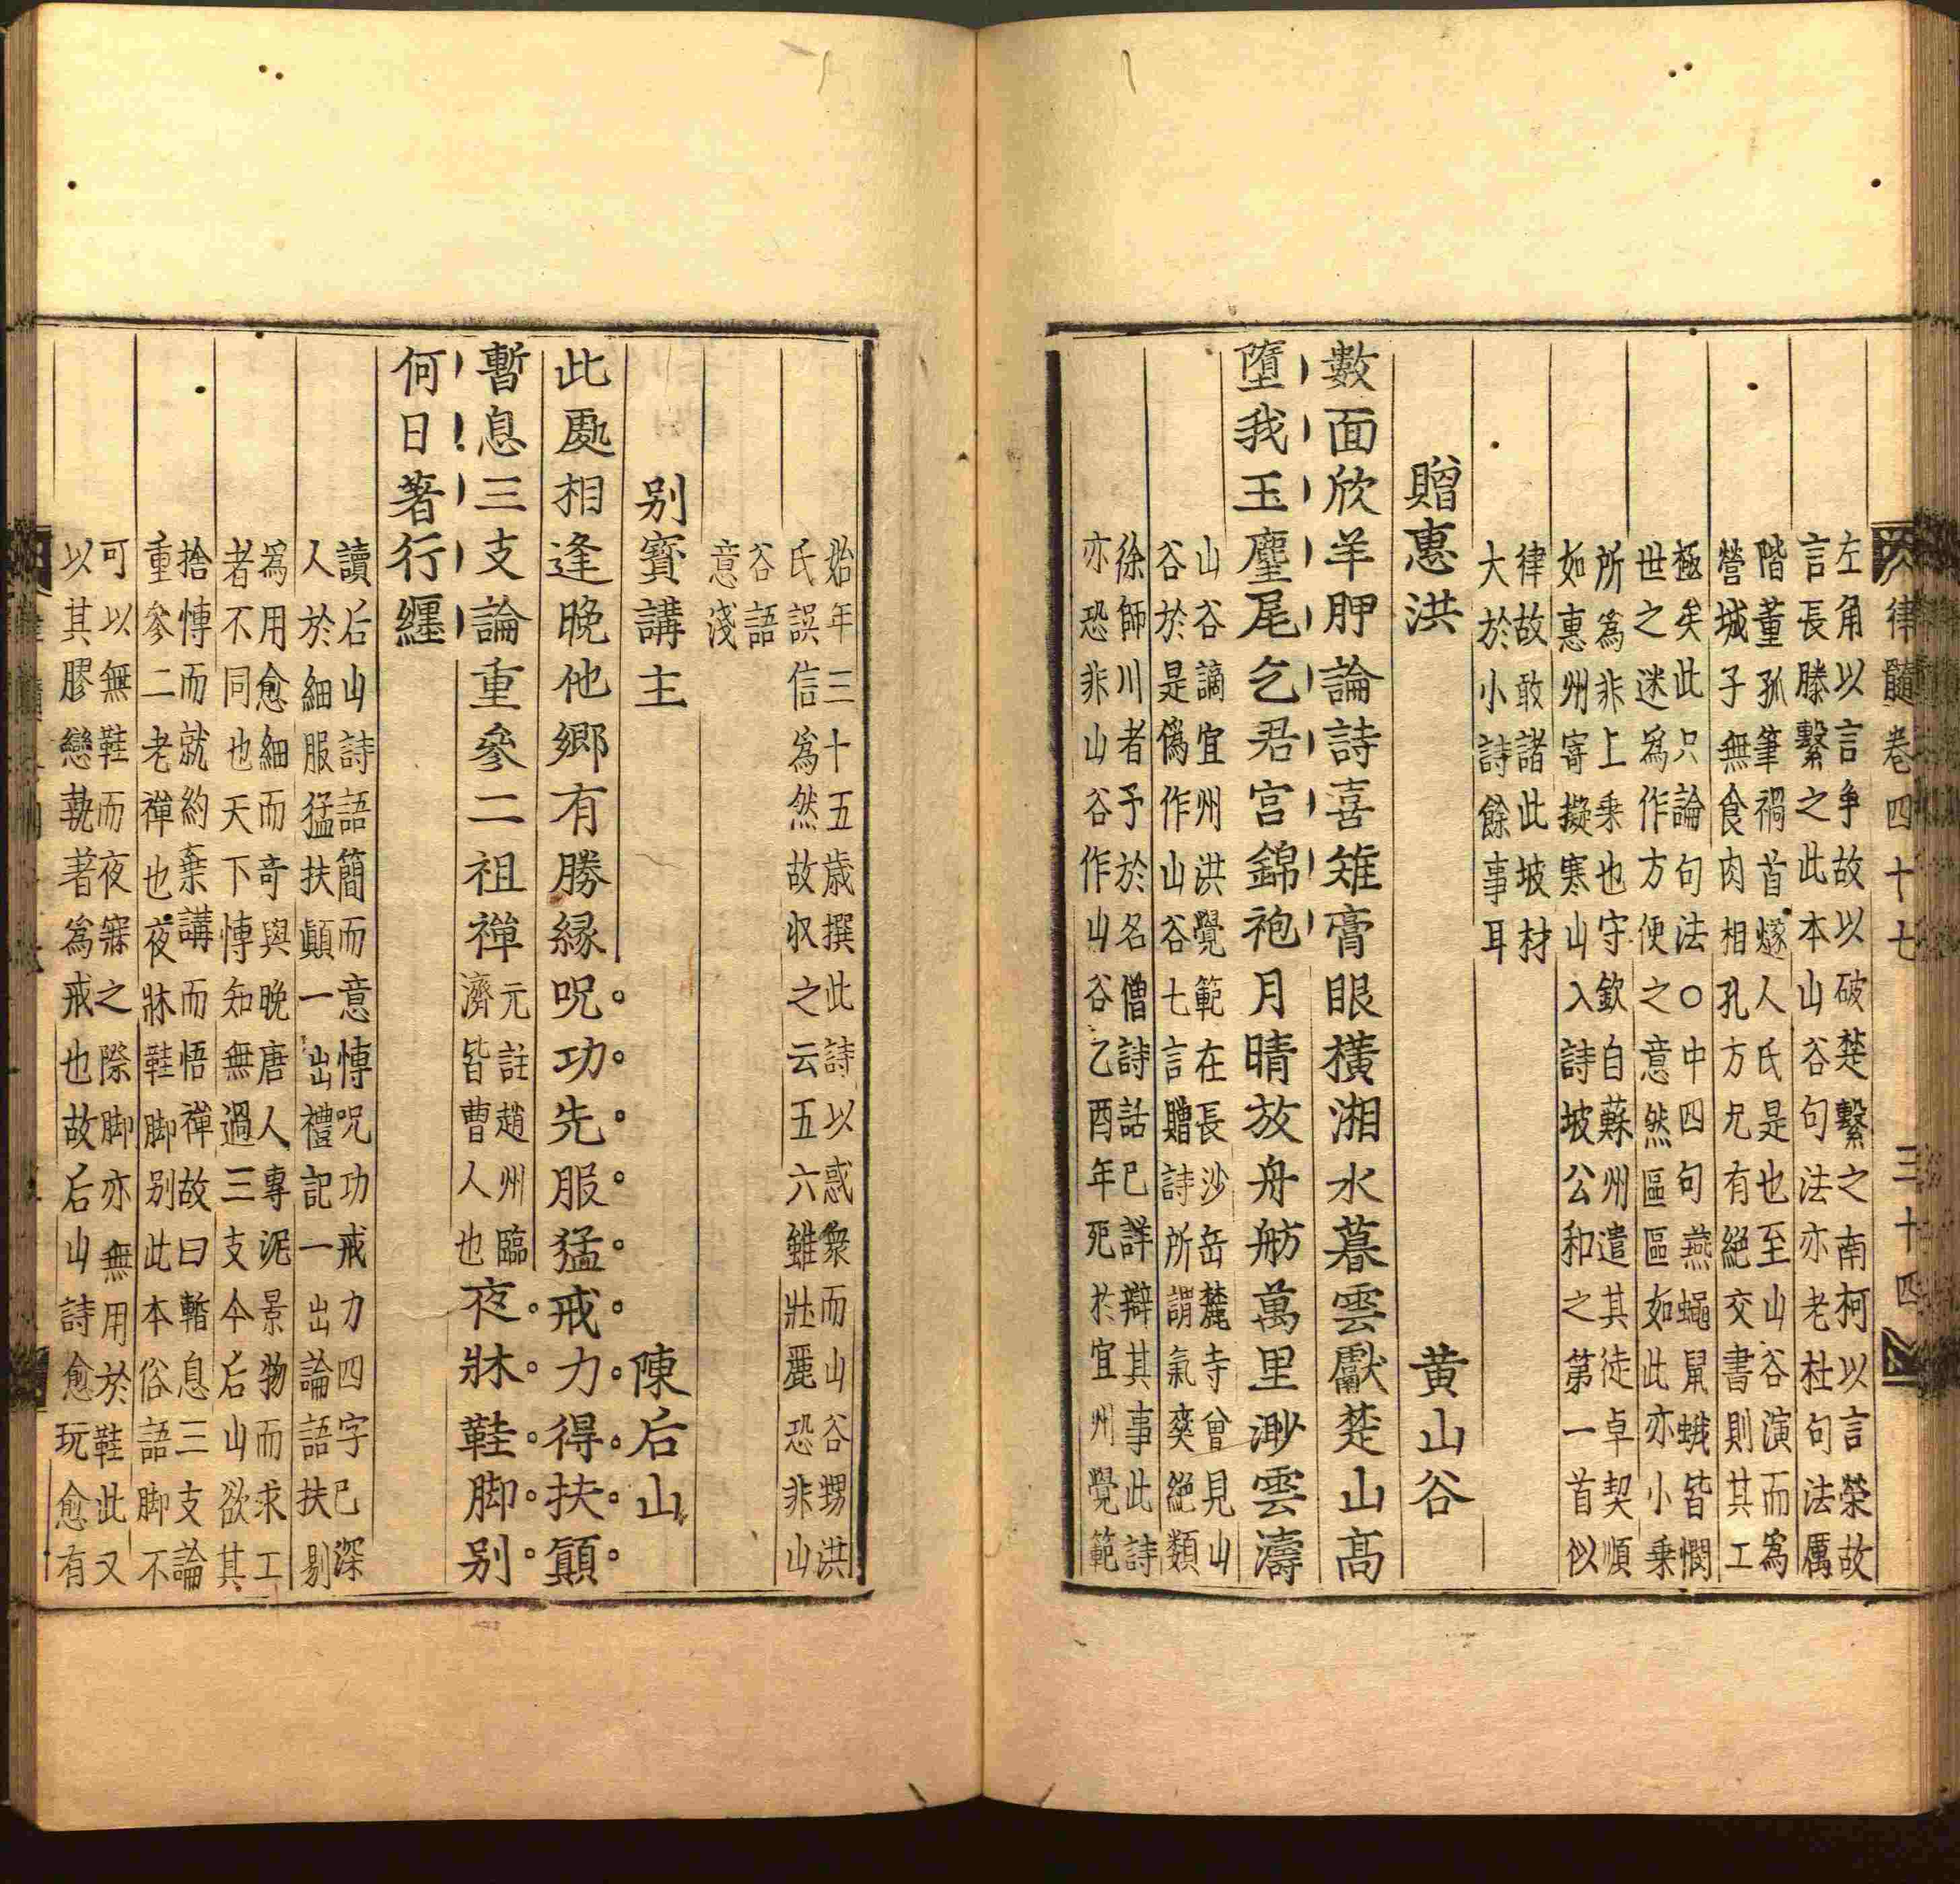 律髓卷四十七 三十四
左角以言爭故以破楚繫之南柯以言榮故
言長滕繫之此本山谷句法亦老杜句法厲
階董孤筆禍首燧人氏是也至山谷演而為
營城子無食肉相孔方兄有絕交書則其工
極矣此只論句法○中四句燕蠅鼠蛾皆憫
世之迷為作方便之意然區區如此亦小乘
所為非上乘也守欽自蘇州遣其徒卓契順
如惠州寄擬寒山入詩坡公和之第一首似
律故敢諸此坡材
大於小詩餘事耳
贈惠洪 黄山谷
數面欣羊胛論詩喜雉膏眼橫湘水暮雲獻楚山高
墮我玉麈尾乞君宫錦袍月晴放舟舫萬里渺雲濤
山谷謫宜州洪覺範在長沙岳麓寺曾見山
谷於是僞作山谷七言贈詩所謂氣爽絕類
徐師川者予於名僧詩話已詳辯其事此詩
亦恐非山谷作山谷乙酉年死於宜州覺範
始年三十五歲撰此詩以惑衆而山谷甥洪
氏誤信為然故収之云五六雖壯麗恐非山
谷語
意淺
别寳講主 陳后山
此處相逢晚他鄉有勝緣呪功先服猛戒力得扶顛
暫息三支論重參二祖禪
元註趙州臨
濟皆曹人也
夜牀鞋脚别
何日著行纏
讀后山詩語簡而意慱呪功戒力四字已深
人於細服猛扶顛一出禮記一出論語扶剔
為用愈細而奇與晚唐人專泥景物而求工
者不同也天下慱知無過三支今后山欲其
捨慱而就約棄講而悟禪故曰暫息三支論
重參二老禪也夜牀鞋脚别此本俗語脚不
可以無鞋而夜寐之際脚亦無用於鞋此又
以其膠戀執著為戒也故后山詩愈玩愈有